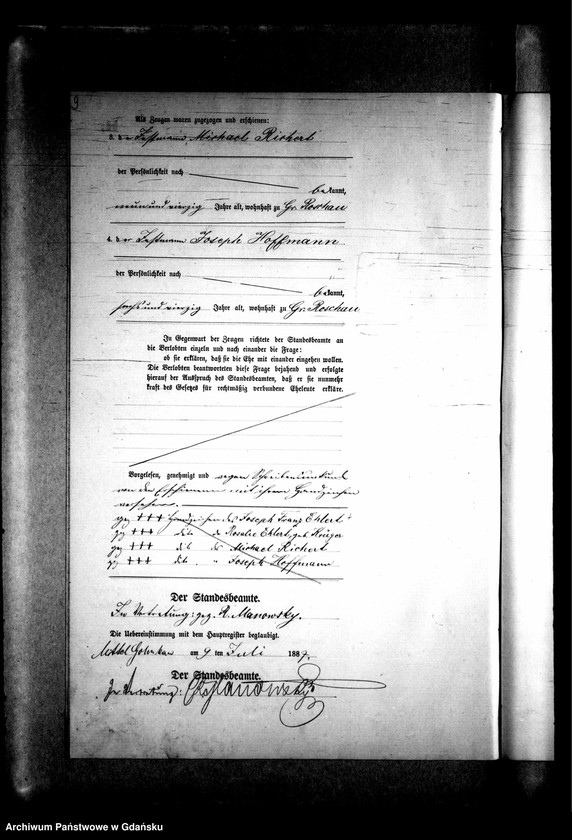 9
Als Zeugen waren zugezogen und erschienen:
3. der Instmann Michael Richert
der Persönlichkeit nach
bekannt,
neun und vierzig Jahre alt, wohnhaft zu Gr. Roschau
4. der Instmann Joseph Hoffmann
der Persönlichkeit nach
bekannt,
sechs und vierzig Jahre alt, wohnhaft zu Gr. Roschau
In Gegenwart der Zeugen richtete der Standesbeamte an
die Verlobten einzeln und nach einander die Frage:
ob sie erklären, daß sie die Ehe mit einander eingehen wollen.
Die Verlobten beantworteten diese Frage bejahend und erfolgte
hierauf der Ausspruch des Standesbeamten, daß er sie nunmehr
kraft des Gesetzes für rechtmäßig verbundene Eheleute erkläre.
Vorgelesen, genehmigt und wegen Schreibensunkunde
von den Erschienenen mit ihren Handzeichen
versehen.
gez +++ Handzeichen des Joseph Franz Ehlert
gez +++ dito der Rosalie Ehlert, geb. Krüger
gez +++ dito des Michael Richert
gez +++ dito " Joseph Hoffmann
Der Standesbeamte.
In Vertretung: gez. R. Manowsky.
Die Uebereinstimmung mit dem Hauptregister beglaubigt.
am 9 ten Juli 1887.
Der Standesbeamte.
In Vertretung: Manowsky
Archiwum Państwowe w Gdańsku